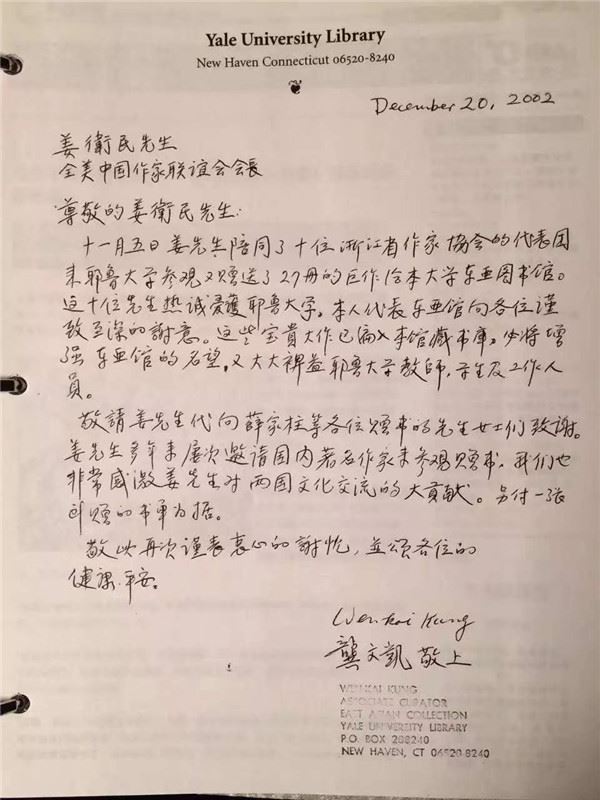 Yale University Library
New Haven Connecticut 06520-8240
December 20, 2002
姜衛民先生
全美中国作家联谊会会長
尊敬的姜衛民先生:
十一月五日姜先生陪同了十位浙江省作家協会的代表团
来耶鲁大学参观又赠送了27冊的巨作给本大学东亚图书馆。
这十位先生热诚爱護耶鲁大学。本人代表东亚馆向各位谨
致至深的謝意。这些宝貴大作已编入本馆藏书庫。必将增
强东亚馆的名望。又大大裨益耶鲁大学教师,学生及工作人
員。
敬請姜先生代向薛家柱等各位赠书的先生女士们致谢。
姜先生多年来屡次邀请国内著名作家来参观赠书,我们也
非常感激姜先生对两国文化交流的大貢献。另付一张
赠的书单为据。
敬此再次谨表衷心的謝忱,並頌各位的
健康平安。
Wenkai Kung
龔文凱 敬上
WENKAI KUNG
ASSOCIATE CURATOR
EAST ASIAN COLLECTION
YALE UNIVERSITY LIBRARY
P.O. BOX 208240
NEW HAVEN, CT 06520-8240